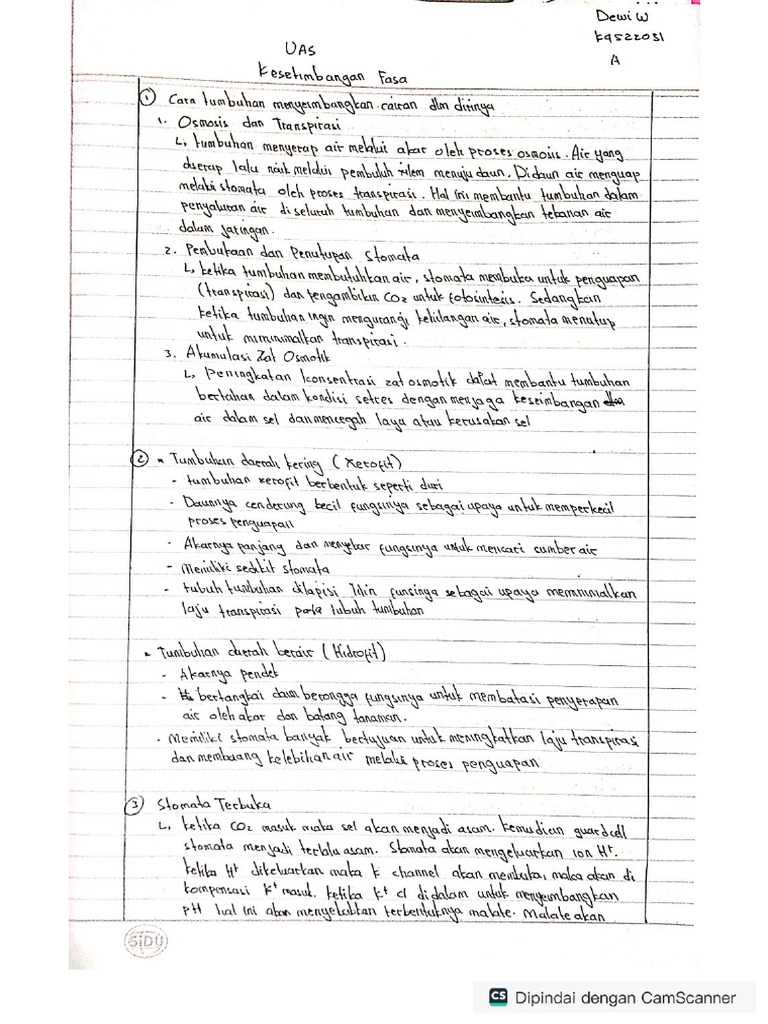 Dewi W
K4522031
A
UAS
Kesetimbangan Fasa
① Cara tumbuhan menyeimbangkan cairan dlm dirinya
1. Osmosis dan Transpirasi
↳ tumbuhan menyerap air melalui akar oleh proses osmosis. Air yang
diserap lalu naik melalui pembuluh xilem menuju daun. Di daun air menguap
melalui stomata oleh proses transpirasi. Hal ini membantu tumbuhan dalam
penyaluran air di seluruh tumbuhan dan menyeimbangkan tekanan air
dalam jaringan.
2. Pembukaan dan Penutupan Stomata
↳ ketika tumbuhan membutuhkan air, stomata membuka untuk penguapan
(transpirasi) dan pengambilan CO2 untuk fotosintesis. Sedangkan
ketika tumbuhan ingin mengurangi kehilangan air, stomata menutup
untuk minimalkan transpirasi.
3. Akumulasi Zat Osmotik
↳ Peningkatan konsentrasi zat osmotik dapat membantu tumbuhan
bertahan dalam kondisi setres dengan menjaga keseimbangan
air dalam sel dan mencegah layu atau kerusakan sel
② * Tumbuhan daerah kering (Xerofit)
- tumbuhan xerofit berbentuk seperti duri
- Daunnya cenderung kecil fungsinya sebagai upaya untuk memperkecil
proses penguapan
- Akarnya panjang dan menyebar fungsinya untuk mencari sumber air
- Memiliki sedikit stomata
- tubuh tumbuhan dilapisi lilin funsinya sebagai upaya meminimalkan
laju transpirasi pada tubuh tumbuhan
* Tumbuhan daerah berair (Hidrofit)
- Akarnya pendek
- bertangkai daun berongga fungsinya untuk membatasi penyerapan
air oleh akar dan batang tanaman.
- Memiliki stomata banyak bertujuan untuk meningkatkan laju transpirasi
dan membuang kelebihan air melalui proses penguapan
③ Stomata Terbuka
↳ ketika CO2 masuk maka sel akan menjadi asam. kemudian guard cell
stomata menjadi terlalu asam. Stomata akan mengeluarkan ion H+.
ketika H+ dikeluarkan maka k channel akan membuka, maka akan di
kompensasi K+ masuk. ketika K+ di didalam untuk menyeimbangkan
pH hal ini akan menyebabkan terbentuknya malate. Malate akan
SiDU
CS Dipindai dengan CamScanner